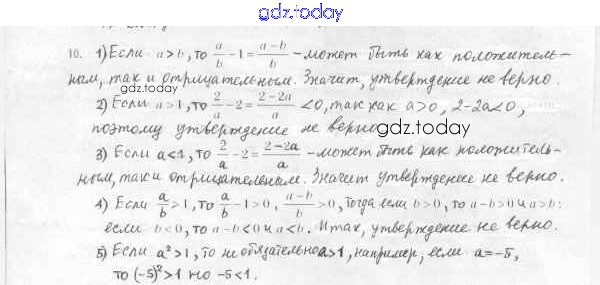 gdz.today
10. 1) Если a>b, то a/b − 1 = (a−b)/b – может быть как положитель-
ным, так и отрицательным. Значит, утверждение не верно.
2) Если a>1, то 2/a − 2 = (2−2a)/a <0, так как a>0, 2−2a<0,
поэтому утверждение не верно
gdz.today
gdz.today
3) Если a<1, то 2/a − 2 = (2−2a)/a – может быть как положитель-
ным, так и отрицательным. Значит утверждение не верно.
4) Если a/b >1, то a/b − 1>0, (a−b)/b >0, тогда если b>0, то a−b>0 и a>b;
если b<0, то a−b<0 и a<b. Итак, утверждение не верно.
5) Если a²>1, то не обязательно a>1, например, если a=−5,
то (−5)²>1 но −5<1.
gdz.today